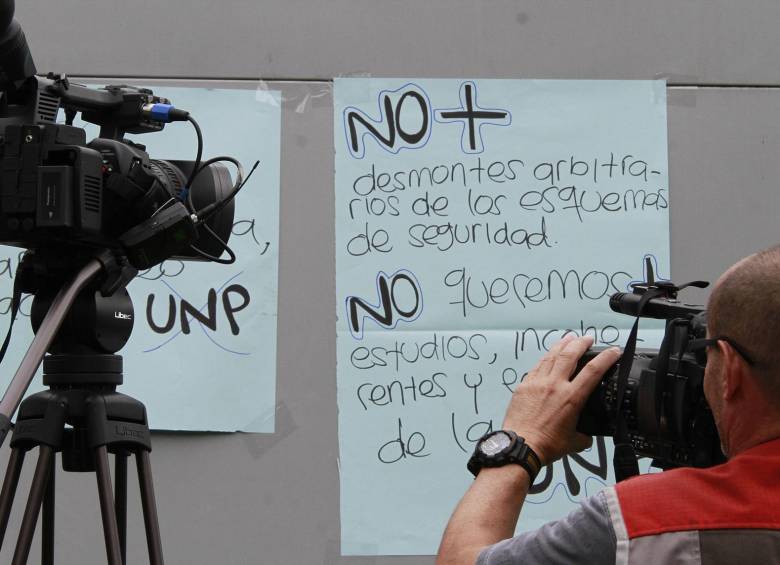 UNP
NO +
desmontes arbitra-
rios de los esquemas
de seguridad.
NO queremos +
estudios, incohe
rentes y
de la
UN
Libec
Libec